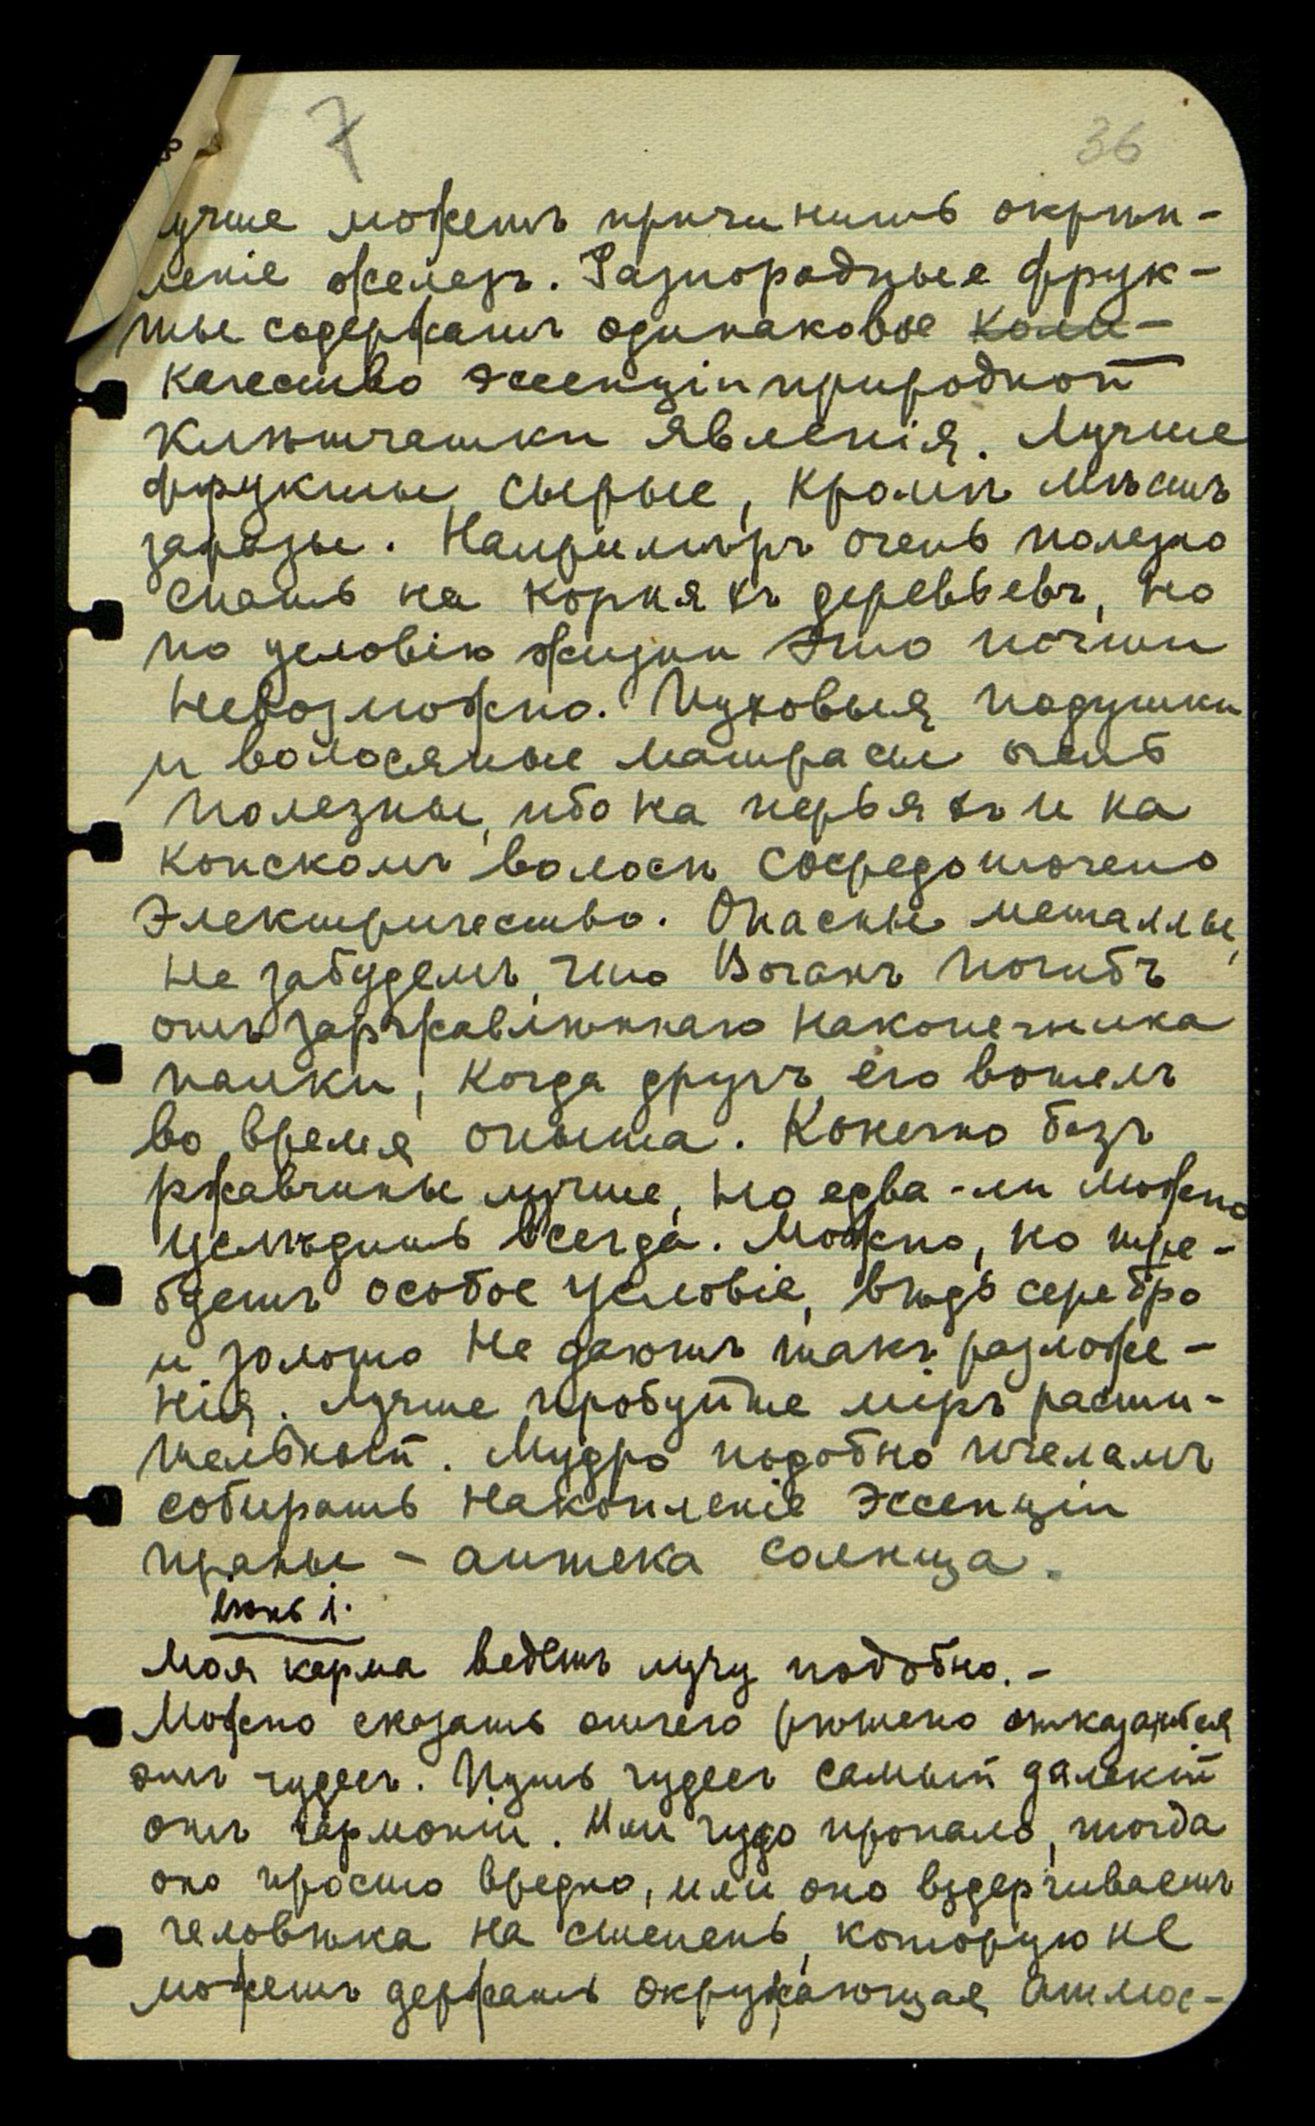 7
36
лучше можетъ причинить окрѣп-
леніе железъ. Разнородные фрук-
ты содержатъ одинаковое коли-
качество эссенціи природной
клѣтчатки явленія. Лучше
фрукты сырые, кромѣ мѣстъ
заразы. Напримѣръ очень полезно
спать на корняхъ деревьевъ, но
по условію жизни это почти
невозможно. Пуховыя подушки
и волосяные матрасы очень
полезны, ибо на перьяхъ и на
конскомъ волосѣ сосредоточено
электричество. Опасны металлы,
не забудемъ, что Воганъ погибъ
отъ заржавлѣннаго наконечника
палки, когда другъ его вошелъ
во время опыта. Конечно безъ
ржавчины лучше, но едва-ли можно
услѣдить всегда. Можно, но тре-
буетъ особое условіе, вѣдь серебро
и золото не даютъ такъ разложе-
нія. Лучше пробуйте міръ расти-
тельный. Мудро подобно пчеламъ
собирать накопленіе эссенціи
праны – аптека солнца.
Іюнь 1.
Моя карма ведетъ лучу подобно. –
Можно сказать отчего рѣшено отказаться
отъ чудесъ. Путь чудесъ самый далекій
отъ гармоніи. Или чудо пропало, тогда
оно просто вредно, или оно вздергиваетъ
человѣка на степень, которую не
можетъ держать окружающая атмос-